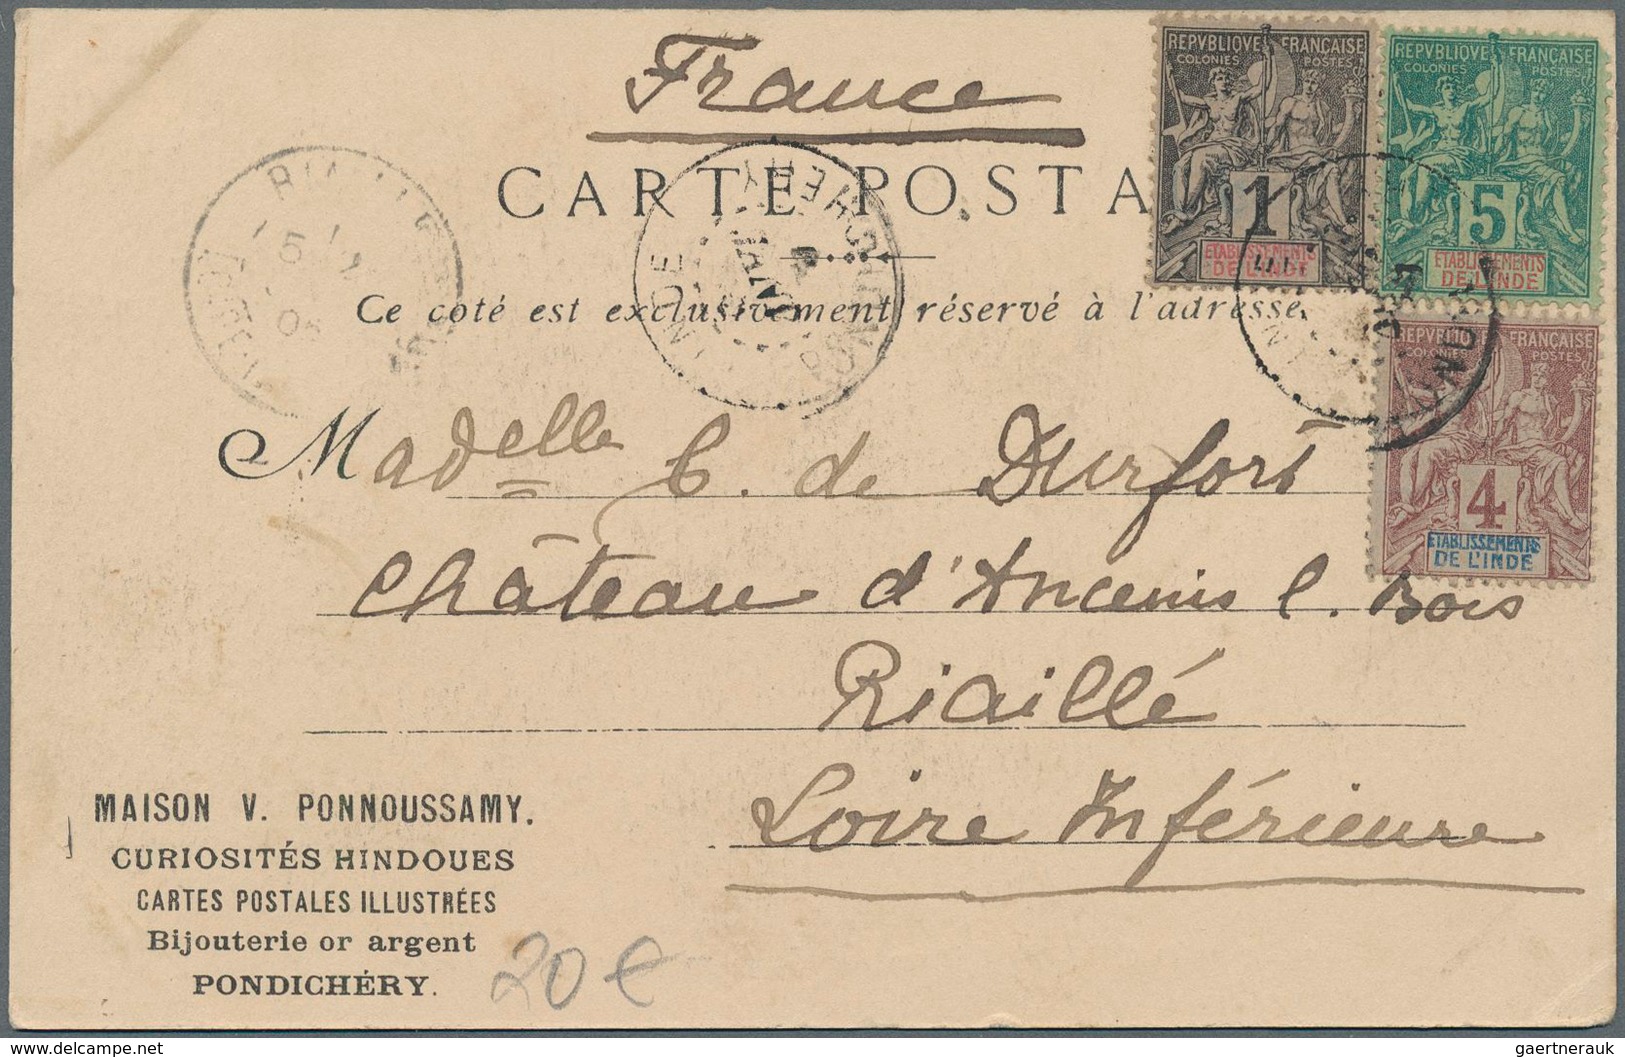 France
CARTE POSTA
Ce coté est exclusivement réservé à l'adresse.
REPVBLIQVE FRANÇAISE
COLONIES POSTES
1
ETABLISSEMENTS
DE L'INDE
REPVBLIQVE FRANÇAISE
COLONIES POSTES
5
ETABLISSEMENTS
DE L'INDE
REPVBLIQUE FRANÇAISE
COLONIES POSTES
4
ETABLISSEMENTS
DE L'INDE
INDE
Madelle C. de Durfort
Château d'Ancenis l. Bois
Riaillé
Loire Inférieure
MAISON V. PONNOUSSAMY.
CURIOSITÉS HINDOUES
CARTES POSTALES ILLUSTRÉES
Bijouterie or argent
PONDICHÉRY.
20 €
www.delcampe.net
gaertnerauk